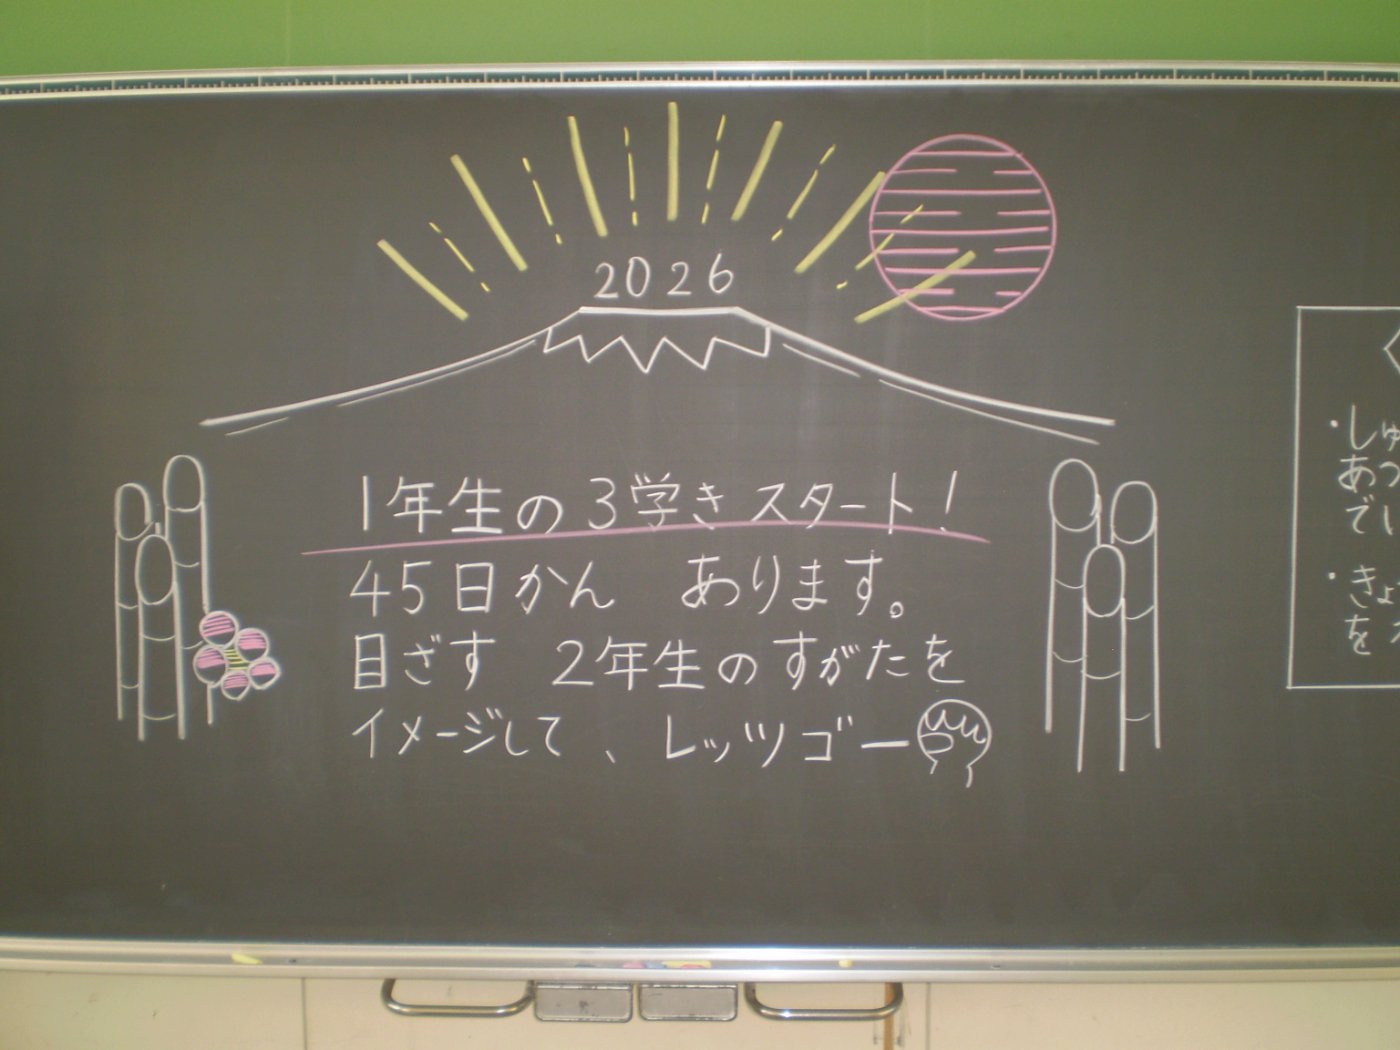 2026
1年生の3学きスタート!
45日かん　あります。
目ざす　2年生のすがたを
イメージして、レッツゴー
・しゅ
あつ
でし
・きょ
を